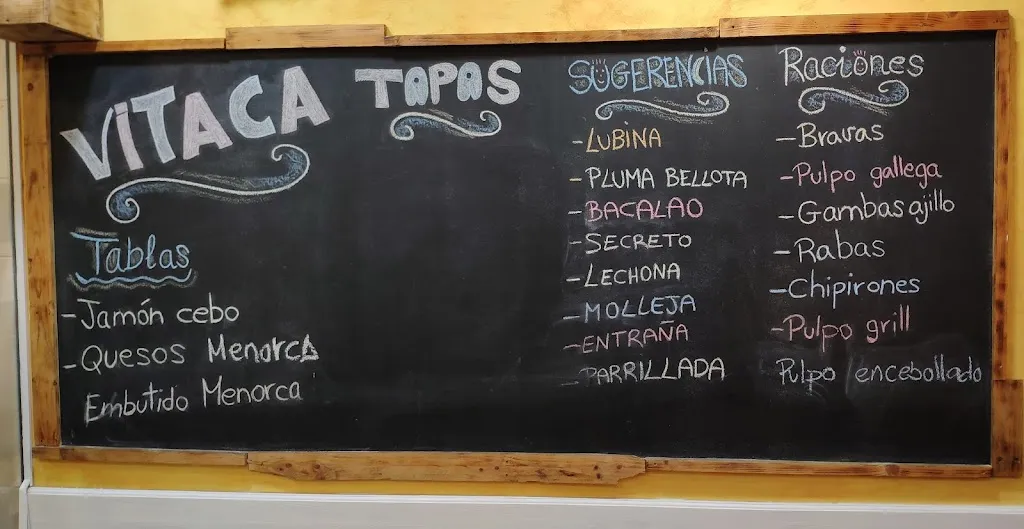 ViTACA
Tablas
-Jamón cebo
-Quesos Menorca
Embutido Menorca
TAPAS
SUGERENCIAS
-LUBINA
-PLUMA BELLOTA
-BACALAO
-SECRETO
-LECHONA
-MOLLEJA
-ENTRAÑA
-PARRILLADA
Raciones
-Bravas
-Pulpo gallega
-Gambas ajillo
-Rabas
-Chipirones
-Pulpo grill
Pulpo encebollado